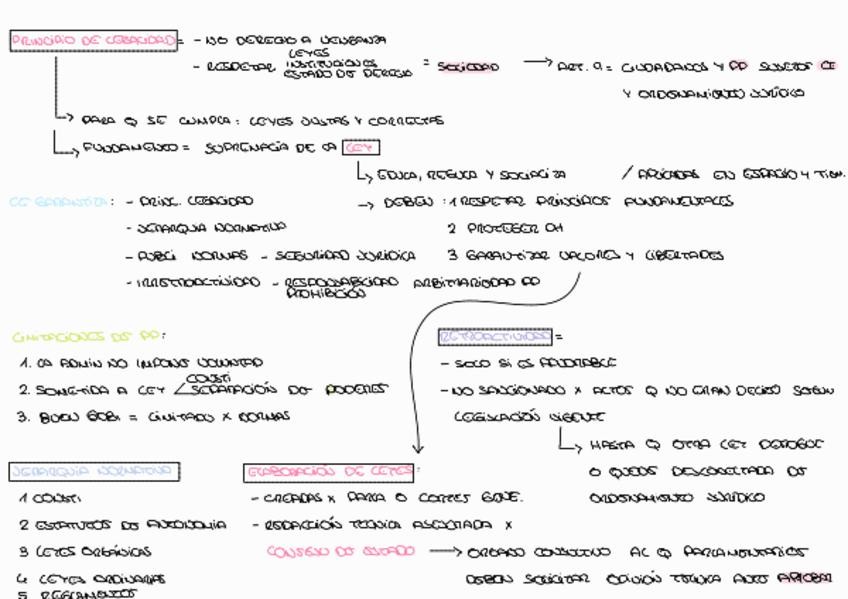 PRINCIPIO DE LEGALIDAD = - NO DERECHO A VENGANZA
- RESPETAR LEYES INSTITUCIONES ESTADO DE DERECHO = SOCIEDAD → ART. 9 = CIUDADANOS Y PP SUJETOS CE
Y ORDENAMIENTO JURÍDICO
PARA Q SE CUMPLA: LEYES JUSTAS Y CORRECTAS
FUNDAMENTO = SUPREMACÍA DE LA LEY
EDUCA, REGULA Y SOCIALIZA / APLICADAS EN ESPACIO Y TIEM.
CE GARANTIZA: - PRINC. LEGALIDAD
- JERARQUIA NORMATIVA
- PUBLI NORMAS - SEGURIDAD JURÍDICA
- IRRETROACTIVIDAD - RESPONSABILIDAD PROHIBICIÓN ARBITRARIEDAD PP
→ DEBEN: 1 RESPETAR PRINCIPIOS FUNDAMENTALES
2 PROTEGER DH
3 GARANTIZAR VALORES Y LIBERTADES
LIMITACIONES DE PP:
1. LA ADMIN NO IMPONE VOLUNTAD
2. SOMETIDA A LEY < CONSTI SEPARACIÓN DE PODERES
3. BUEN GOBI = LIMITADO X NORMAS
RETROACTIVIDAD =
- SOLO SI ES FAVORABLE
- NO SANCIONADO X ACTOS Q NO ERAN DELITO SEGUN
LEGISLACIÓN VIGENTE
HASTA Q OTRA LEY DEROGUE
O QUEDE DESCONECTADA DE
ORDENAMIENTO JURÍDICO
JERARQUIA NORMATIVA
1 CONSTI
2 ESTATUTOS DE AUTONOMIA
3 LEYES ORGÁNICAS
4 LEYES ORDINARIAS
5 REGLAMENTOS
ELABORACIÓN DE LEYES:
- CREADAS X PARLA O CORTES GENE.
- REDACCIÓN TECNICA ASOCIADA X
CONSEJO DE ESTADO → ORGANO CONSULTIVO AL Q PARLAMENTARIOS
DEBEN SOLICITAR OPINIÓN TECNICA ANTE APROBAR